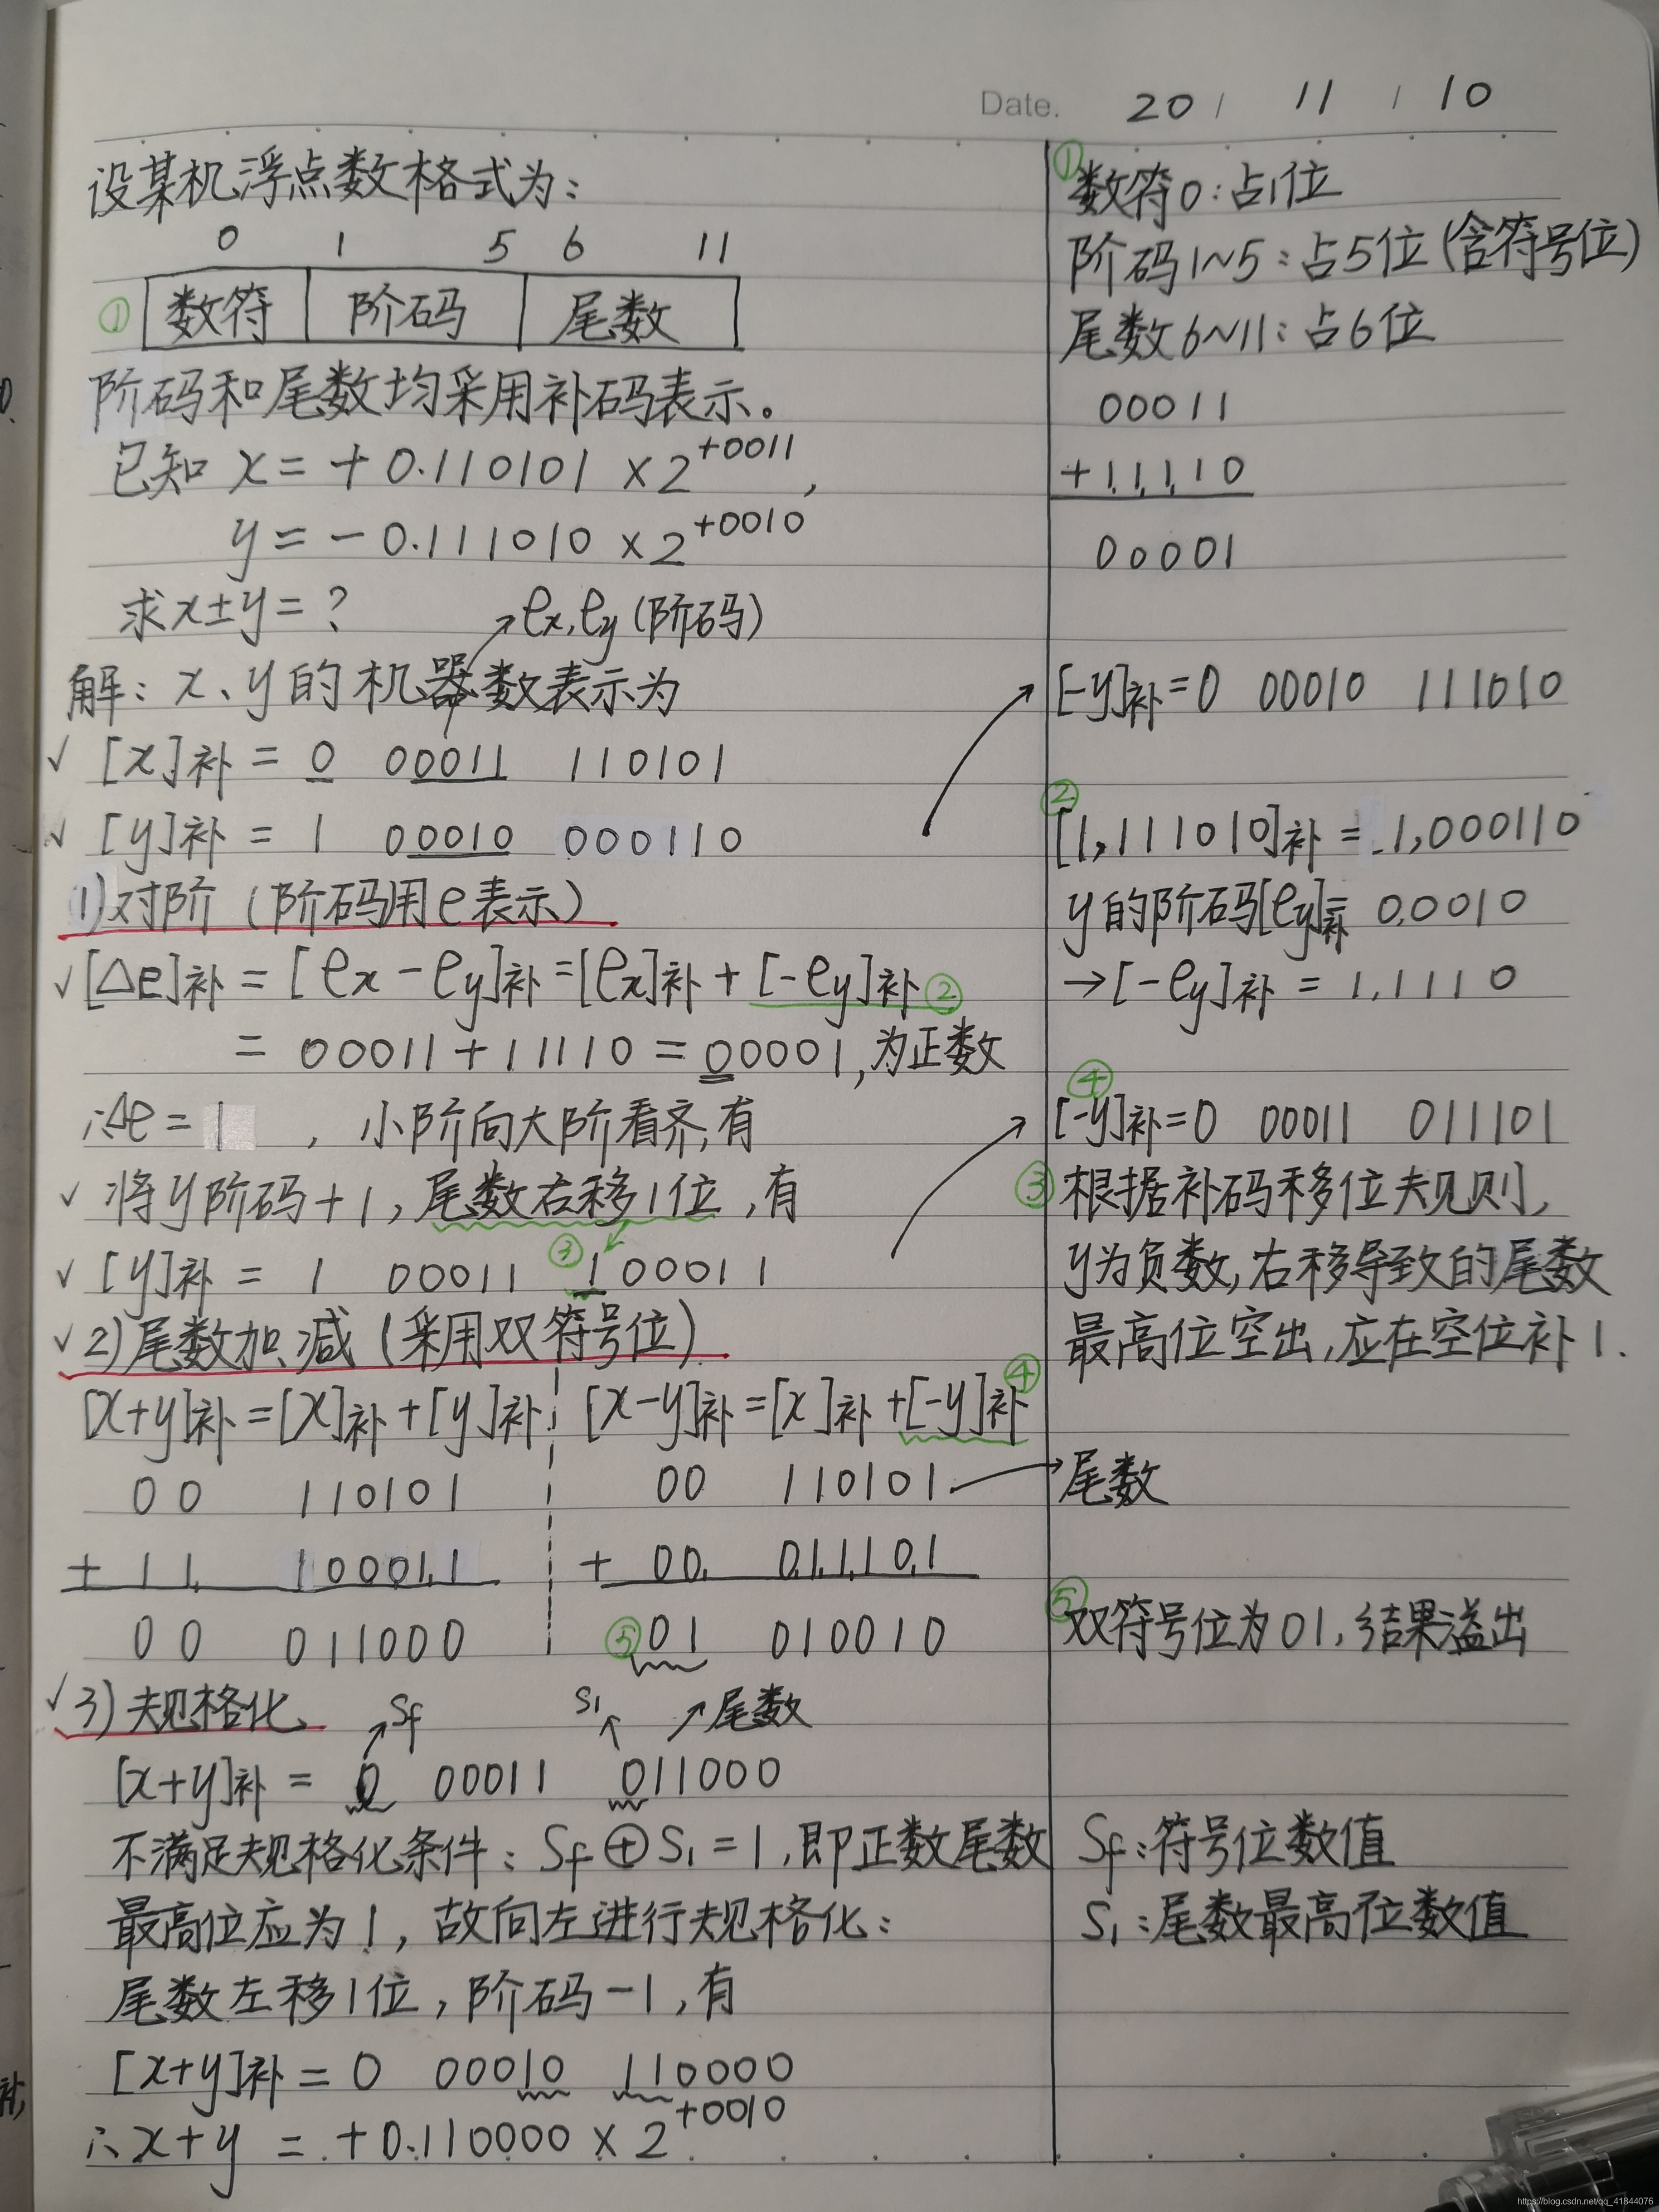 Date. 20 / 11 / 10
设某机浮点数格式为:
0 1 5 6 11
① 数符 阶码 尾数
阶码和尾数均采用补码表示。
已知 x = + 0.110101 × 2^{+0011},
y = - 0.111010 × 2^{+0010}
求x±y = ?
→ex,ey (阶码)
解: x、y的机器数表示为
√ [x]补 = 0 00011 110101
√ [y]补 = 1 00010 000110
1)对阶 (阶码用e表示)
√[△e]补 = [ex - ey]补=[ex]补 + [-ey]补②
= 00011 + 11110 = 00001,为正数
∴△e = 1 , 小阶向大阶看齐,有
√ 将y阶码+1, 尾数右移1位 ,有
√ [y]补 = 1 00011 ③ 100011
√2)尾数加、减 (采用双符号位)
[x+y]补=[x]补+[y]补 [x-y]补=[x]补+[-y]补 ④
00 110101 00 110101 → 尾数
+ 11 100011 + 00 011101
00 011000 ⑤ 01 010010
√3) 规格化
Sf S1 尾数
[x+y]补 = 0 00011 011000
不满足规格化条件: Sf⊕S1 = 1,即正数尾数
最高位应为1, 故向左进行规格化:
尾数左移1位, 阶码-1, 有
[x+y]补 = 0 00010 110000
∴x+y = +0.110000 × 2^{+0010}
①
数符0:占1位
阶码1~5:占5位(含符号位)
尾数6~11:占6位
00011
+11110
00001
[-y]补=0 00010 111010
②
[1,111010]补 = 1,000110
y的阶码[ey]补= 0,0010
→[-ey]补 = 1,1110
④
[-y]补=0 00011 011101
③根据补码移位规则,
y为负数,右移导致的尾数
最高位空出,应在空位补1.
⑤双符号位为01,结果溢出
Sf:符号位数值
S1:尾数最高位数值
补,
https://blog.csdn.net/qq_41844076